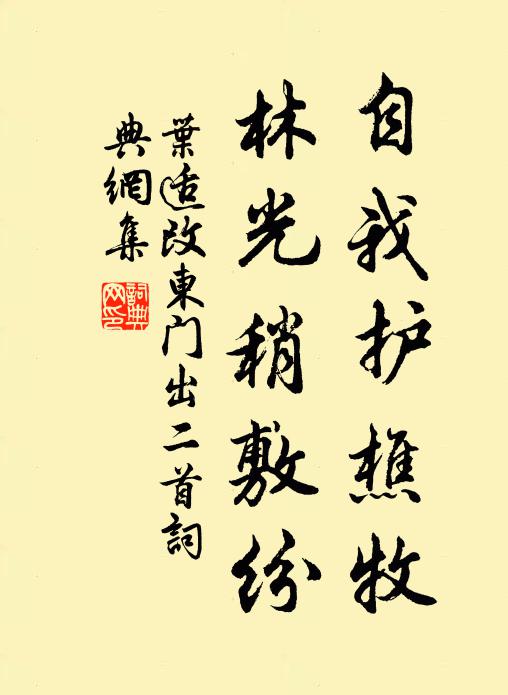 自我护樵牧
林光稍敷纷
葉适改東门出二首詞
典網集
詞典网印